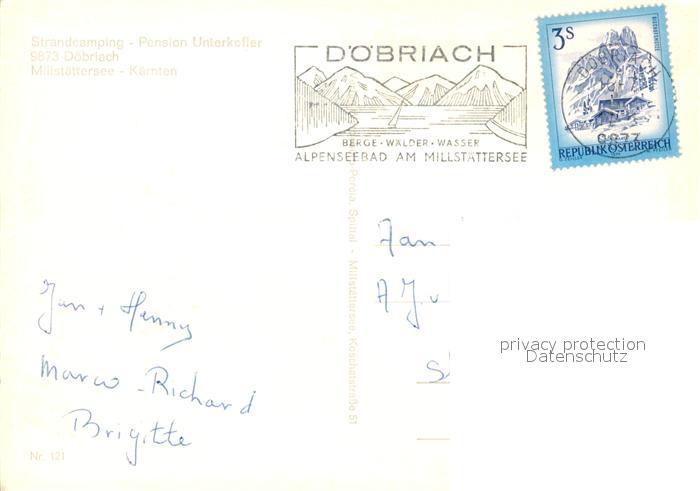 Strandcamping - Pension Unterkofler
9873 Döbriach
Millstättersee - Kärnten
DÖBRIACH
BERGE · WÄLDER · WASSER
ALPENSEEBAD AM MILLSTÄTTERSEE
3S
DÖBRIACH
9873
REPUBLIK ÖSTERREICH
Porcia, Spittal - Millstättersee, Koschatstraße 51
Jan
A.J.v
privacy protection
Datenschutz
Jan + Henny
Marco - Richard
Brigitte
Nr. 121